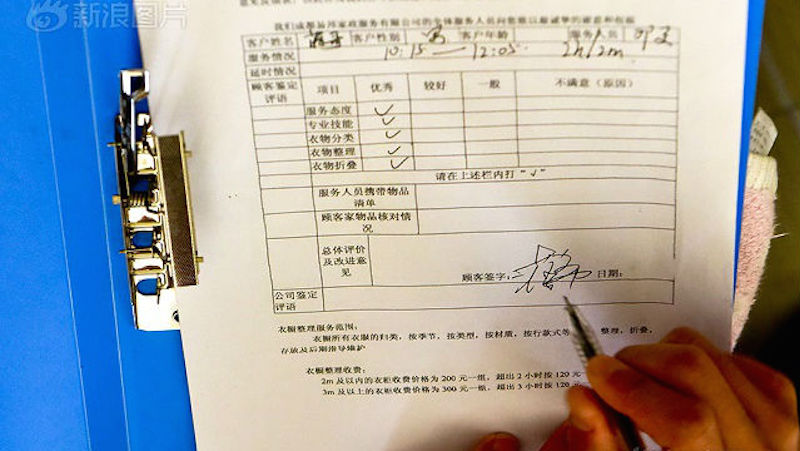 新浪图片
我们成都易邦家政服务有限公司的全体服务人员向您致以最诚挚的谢意和祝福
客户姓名 客户性别 客户年龄 服务人员
服务情况 10:15—12:05 2h/2m
延时情况
顾客鉴定评语 项目 优秀 较好 一般 不满意（原因）
服务态度 ✓
专业技能 ✓
衣物分类 ✓
衣物整理 ✓
衣物折叠 ✓
请在上述栏内打“√”
服务人员携带物品
清单
顾客家物品核对情
况
总体评价
及改进意
见
顾客签字： 日期：
公司鉴定
评语
衣橱整理服务范围：
衣橱所有衣服的归类，按季节，按类型，按材质，按行款式等 整理，折叠，
存放及后期指导维护
衣橱整理收费：
2m及以内的衣柜收费价格为200元一组，超出2小时按120元
3m及以上的衣柜收费价格为300元一组，超出3小时按120